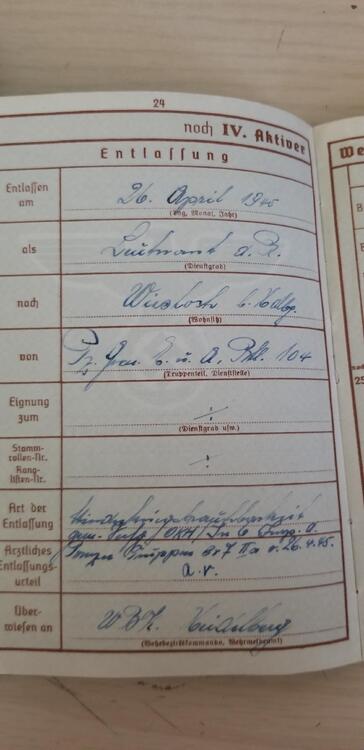 24
noch IV. Aktiver
We
Entlassung
Entlassen am
26. April 1945
(Tag, Monat, Jahr)
als
Leutnant d. R.
(Dienstgrad)
nach
Wiesloch b. Hdlbg.
(Wohnsitz)
von
Pz. Gren. E. u. A. Btl. 104
(Truppenteil, Dienststelle)
Eignung zum
(Dienstgrad usw.)
Stamm-
rollen-Nr.
Rang-
listen-Nr.
Art der
Entlassung
gem. OKH / In 6
Ärztliches
Entlassungs-
urteil
IIa v. 26.4.45.
a.v.
Über-
wiesen an
WBK. Heidelberg
(Wehrbezirkskommando, Wehrmeldeamt)